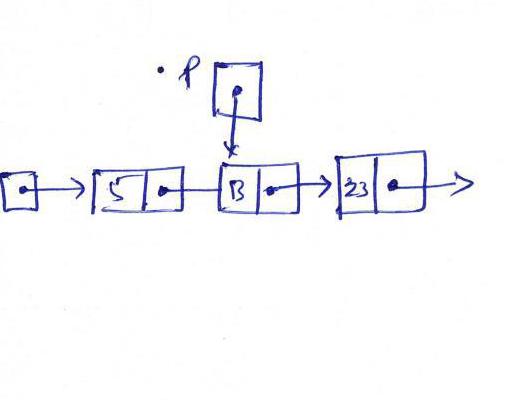 P
5 13 23